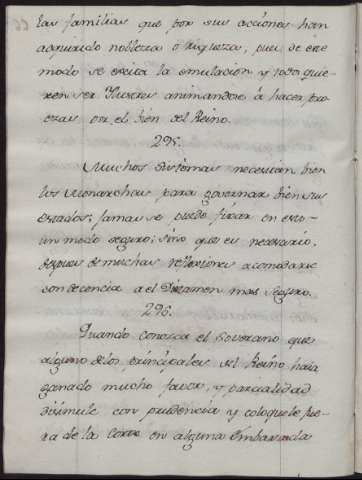 las familias que por sus acciones han
adquirido nobleza ó riqueza, pues de este
modo se excita la emulacion y todos quie-
ren ser Ilustres animandose á hacer pro-
ezas por el bien del Reino.
295.
Muchos sistemas necesitan bien
los Monarchas para governar bien sus
estados; jamas se puede fixar en esto
un modo seguro; sino que es necesario,
despues de muchas reflexiones acomodarse
con decencia a el Dictamen mas seguro.
296.
Quando conosca el Soverano que
alguno de los principales del Reino haia
ganado mucho favor, y parcialidad
disimule con prudencia y coloquele fue-
ra de la Corte en alguna Embaxada